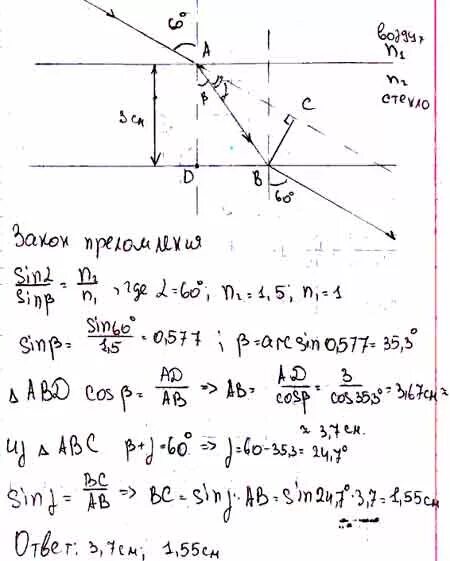 60°
A
воздух
n₁
n₂
стекло
β
γ
C
3 см
D
B
60°
Закон преломления
Sinα/Sinβ = n₂/n₁, где α=60°; n₂=1,5; n₁=1
Sinβ = Sin60°/1,5 = 0,577; β=arcsin0,577=35,3°
△ABD cosβ = AD/AB => AB = AD/cosβ = 3/cos35,3° = 3,67см ≈
≈ 3,7см.
Из △ABC β+γ=60° => γ=60-35,3=24,7°
Sinγ = BC/AB => BC=Sinγ·AB=Sin24,7°·3,7=1,55см
Ответ: 3,7см; 1,55см